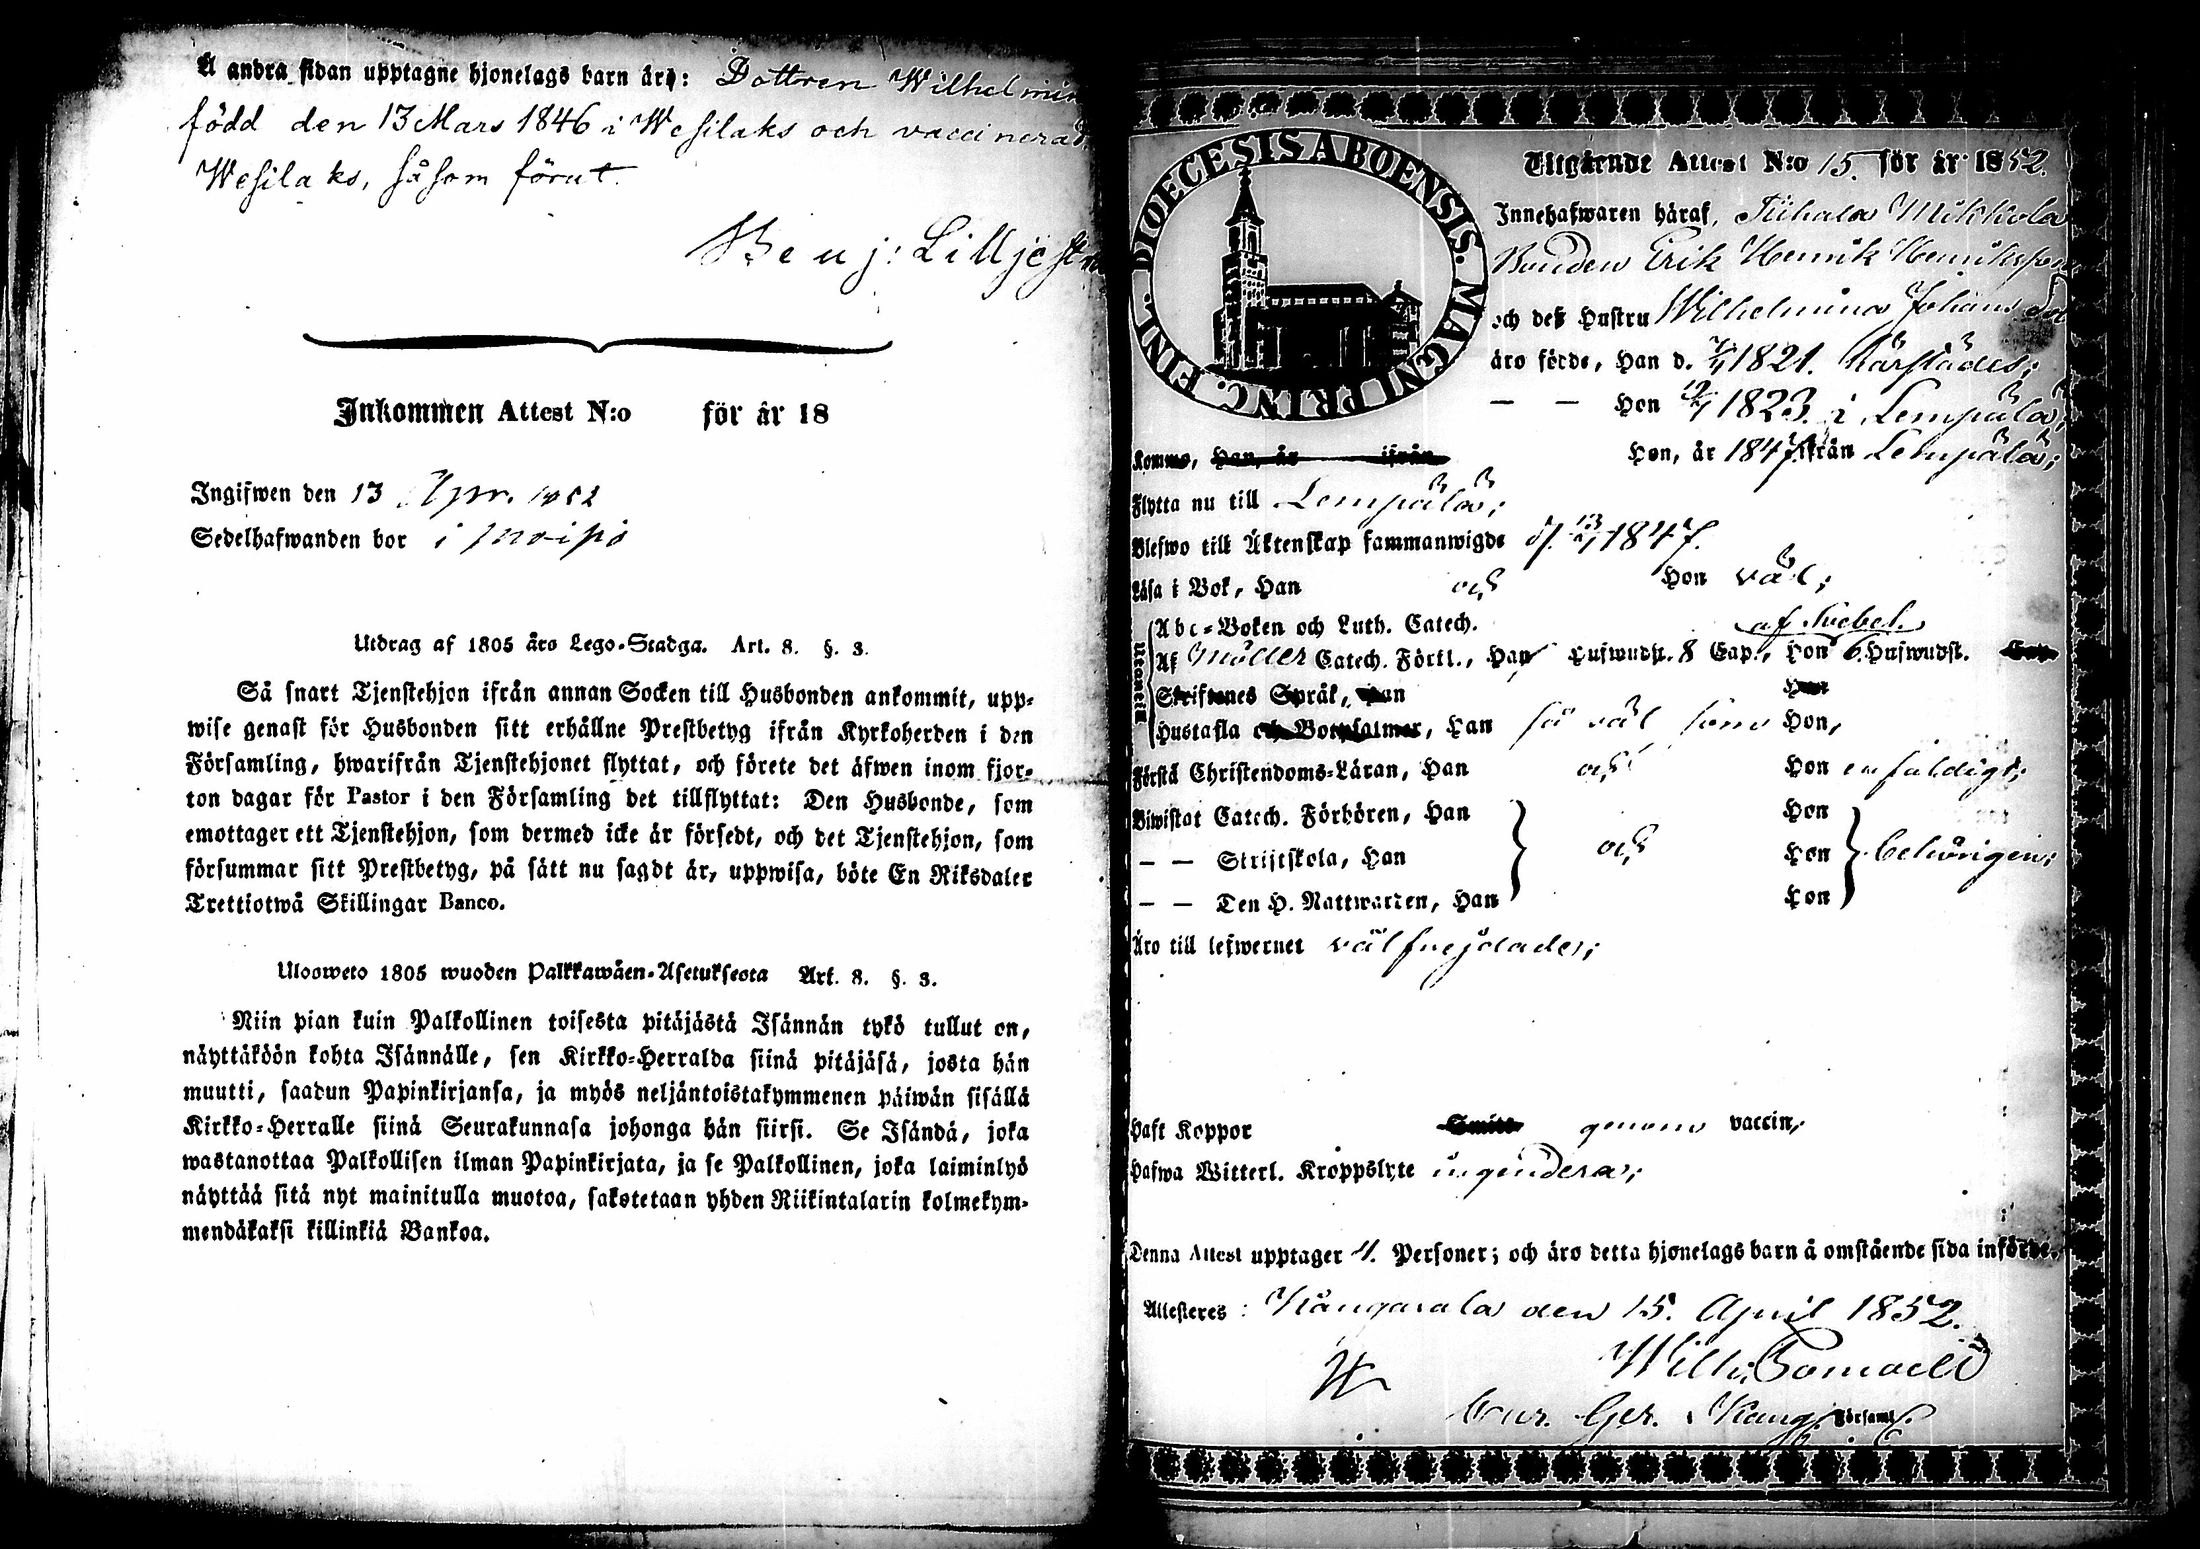 Å andra sidan upptagne hjonelags barn äro: Dottren Wilhelmin
född den 13 Mars 1846 i Wesilaks och vaccinerad
Wesilaks, såsom förut.
Benj: Lilljest
Inkommen Attest N:o för år 18
Ingifwen den 13 Apr. 1852
Sedelhafwanden bor i
Utdrag af 1805 års Lego-Stadga. Art. 8. §. 3.
Så snart Tjenstehjon ifrån annan Socken till Husbonden ankommit, upp-
wise genast för Husbonden sitt erhållne Prestbetyg ifrån Kyrkoherden i den
Församling, hwarifrån Tjenstehjonet flyttat, och förete det äfwen inom fjor-
ton dagar för Pastor i den Församling det tillflyttat: Den Husbonde, som
emottager ett Tjenstehjon, som dermed icke är försedt, och det Tjenstehjon, som
försummar sitt Prestbetyg, på sätt nu sagdt är, uppwisa, böte En Riksdaler
Trettiotwå Skillingar Banco.
Ulosweto 1805 wuoden Palkkawäen-Asetuksesta Art. 8. §. 3.
Niin pian kuin Palkollinen toisesta pitäjästä Isännän tykö tullut on,
näyttäköön kohta Isännälle, sen Kirkko-Herralda siinä pitäjäsä, josta hän
muutti, saadun Papinkirjansa, ja myös neljäntoistakymmenen päiwän sisällä
Kirkko-Herralle siinä Seurakunnasa johonga hän siirsi. Se Isändä, joka
wastanottaa Palkollisen ilman Papinkirjata, ja se Palkollinen, joka laiminlyö
näyttää sitä nyt mainitulla muotoa, sakotetaan yhden Riikintalarin kolmekym-
mendäkaksi killinkiä Bankoa.
DIOECESIS ABOENSIS. MAGNI PRINC. FINL.
Utgående Attest N:o 15. för år 1852.
Innehafwaren häraf, Tiihala Mikkola
Bonden Erik Henrik Henriksson
och deß Hustru Wilhelmina Johansd
äro födde, Han d. 1821. härstädes;
— — Hon 1823. i Lempäla;
Komne, Han, år ifrån Hon, år 1847 ifrån Lempälä;
Flytta nu till Lempälä;
Blefwo till Äktenskap sammanwigde d. 1847.
Läsa i Bok, Han och Hon väl;
Abc-Boken och Luth. Catech. af Svebel.
Utantill
Af Möller Catech. Förkl., Han Hufwudst. 8 Cap., Hon 6 Hufwudst. Cap
Skriftenes Språk, Han Hon
Hustafla och Botpsalmer, Han så väl som Hon,
Förstå Christendoms-Läran, Han och Hon enfaldigt;
Biwistat Catech. Förhören, Han Hon
— — Skriftskola, Han och Hon behörigen;
— — Den H. Nattwarden, Han Hon
Äro till lefwernet välfrejdade;
Haft Koppor Smitto genom vaccin;
Hafwa Witterl. Kroppslyte ingendera;
Denna Attest upptager 4. Personer; och äro detta hjonelags barn å omstående sida införde.
Attesteres: Kangasala den 15. April 1852.
Wilh.
Cur. Ger. i Kang. Församl.